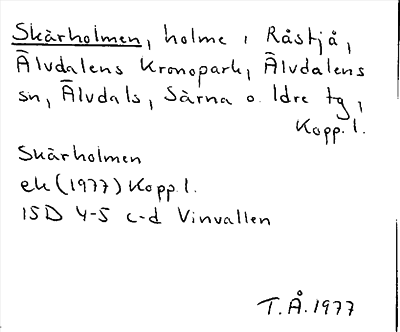 Skärholmen, holme i Råstjå,
Älvdalens Kronopark, Älvdalens
sn, Älvdals, Särna o. Idre tg,
Kopp. l.
Skärholmen
ek (1977) Kopp. l.
15D 4-5 c-d Vinvallen
T.Å. 1977